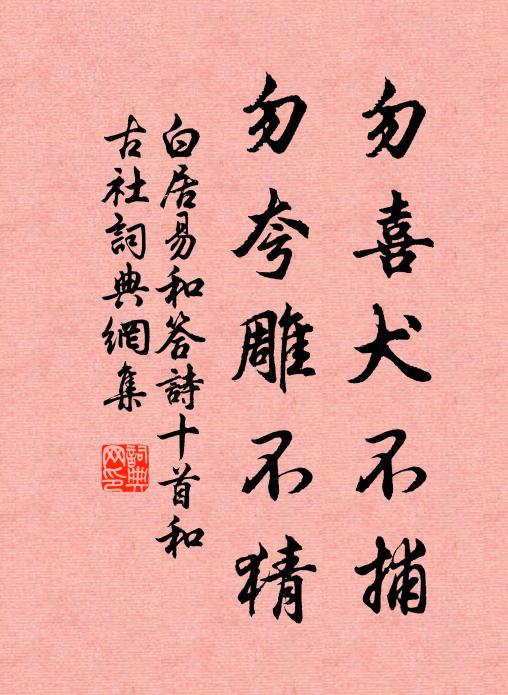 勿喜犬不捕
勿夸雕不猜
白居易和答詩十首和
古社詞典網集
詞典网印